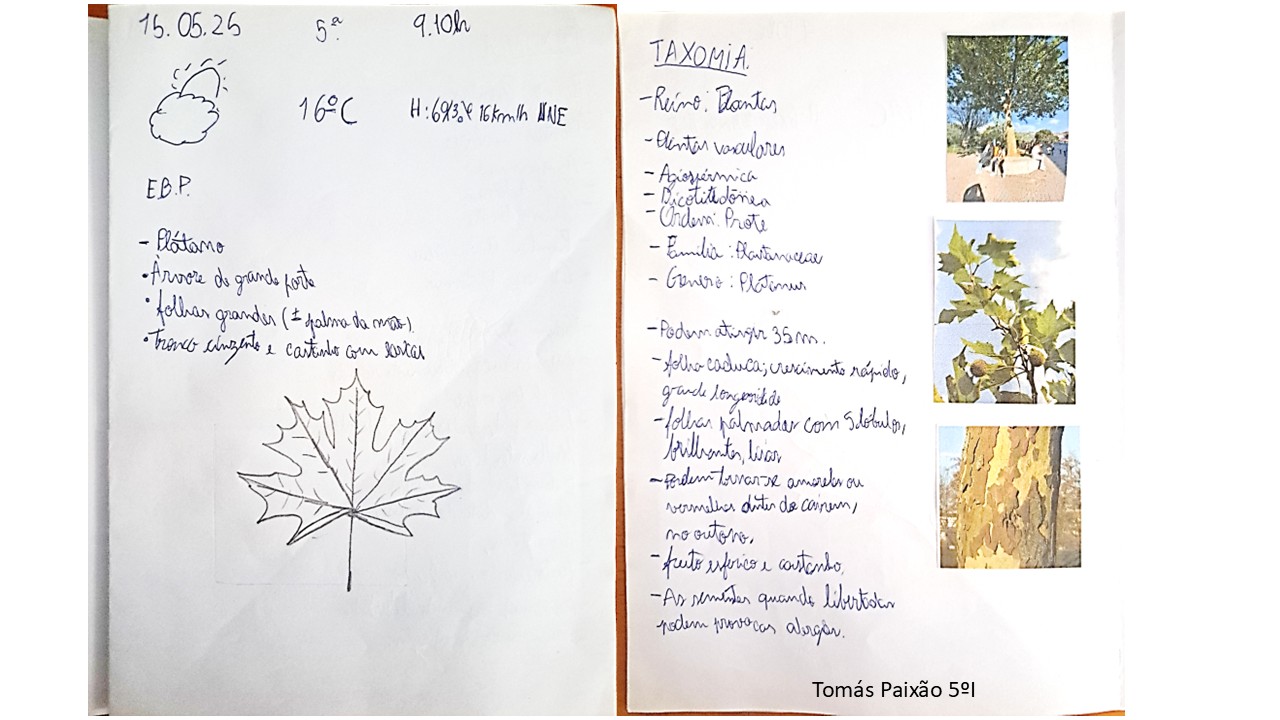 15.05.25 5ª. 9.10h
16ºC H: 69% 16km/h NNE
E.B.P.
- Plátano
• Árvore de grande porte
• folhas grandes (± palma da mão)
• Tronco cinzento e castanho com
TAXOMIA.
- Reino: Plantas
- Plantas vasculares
- Agiospérmica
- Dicotiledónea
- Ordem: Prote
- Família: Plantanaceae
- Genero: Platanus
- Podem atingir 35m.
- folha caduca; crescimento rápido,
grande longevidade
- folhas palmadas com 5 lóbulos,
brilhantes, lisas
- Podem tornar-se amarelas ou
vermelhas antes de cairem,
no outono.
- fruto esferico e castanho.
- As sementes quando libertadas
podem provocar alergia.
Tomás Paixão 5ºI